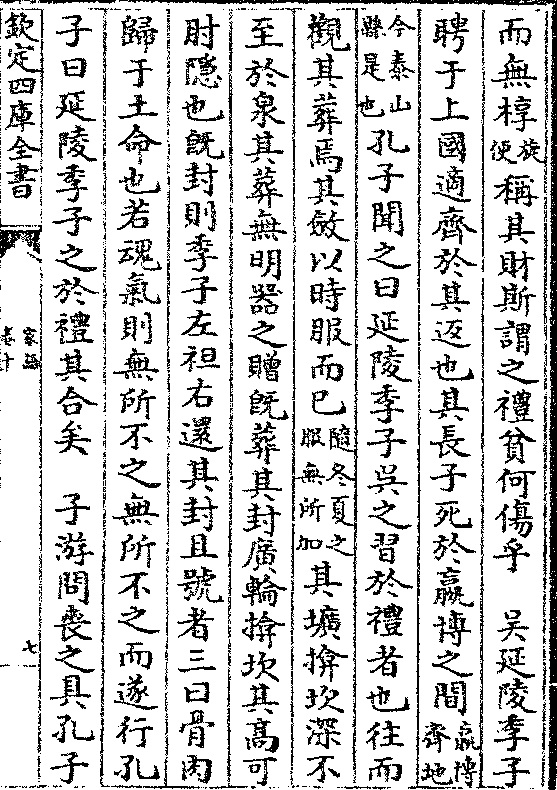 而無椁旋便稱其財斯謂之禮貧何傷乎　吳延陵季子
聘于上國適齊於其返也其長子死於嬴博之間嬴博齊地
今泰山縣是也孔子聞之曰延陵季子吳之習於禮者也往而
觀其葬焉其斂以時服而已隨冬夏之服無所加其壙揜坎深不
至於泉其葬無明器之贈旣葬其封廣輪揜坎其高可
肘隱也旣封則季子左袒右還其封且號者三曰骨肉
歸于土命也若魂氣則無所不之無所不之而遂行孔
子曰延陵季子之於禮其合矣　子游問喪之具孔子
欽定四庫全書
家語
卷十
七